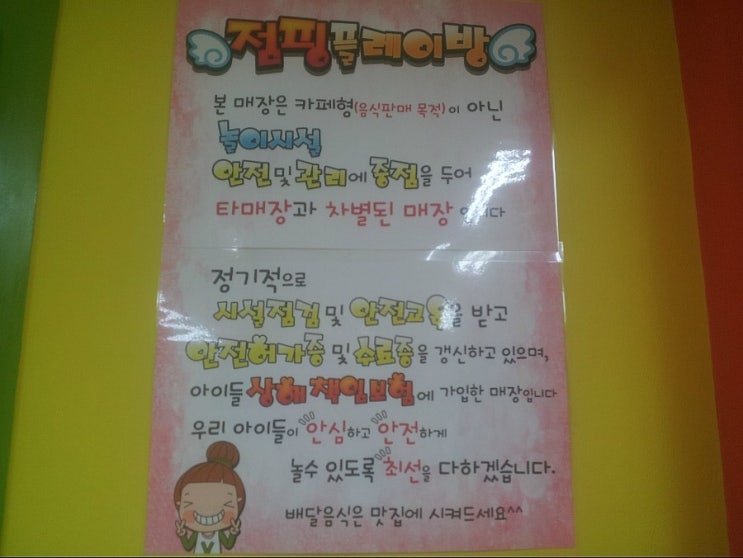 점핑플레이방
본 매장은 카페형(음식판매 목적)이 아닌
놀이시설
안전 및 관리에 중점을 두어
타매장과 차별된 매장 입니다
정기적으로
시설점검 및 안전교육을 받고
안전허가증 및 수료증을 갱신하고 있으며,
아이들 상해 책임보험에 가입한 매장입니다
우리 아이들이 안심하고 안전하게
놀수 있도록 최선을 다하겠습니다.
배달음식은 맛집에 시켜드세요^^